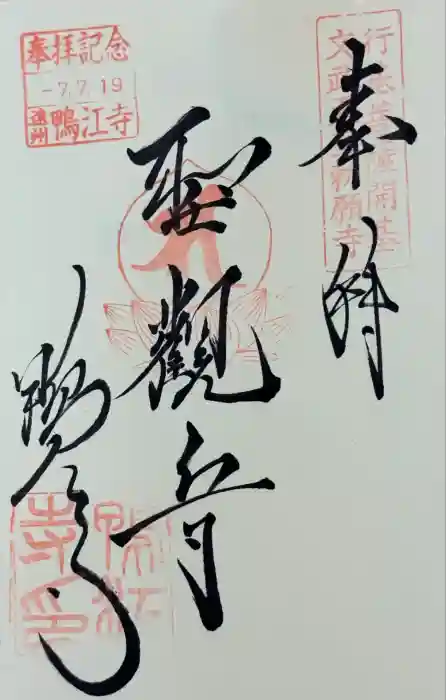 行基菩薩開基
文武天皇勅願寺
奉拝
聖観音
鴨江寺
奉拝記念
-7.7.19
遠州 鴨江寺
鴨江寺印